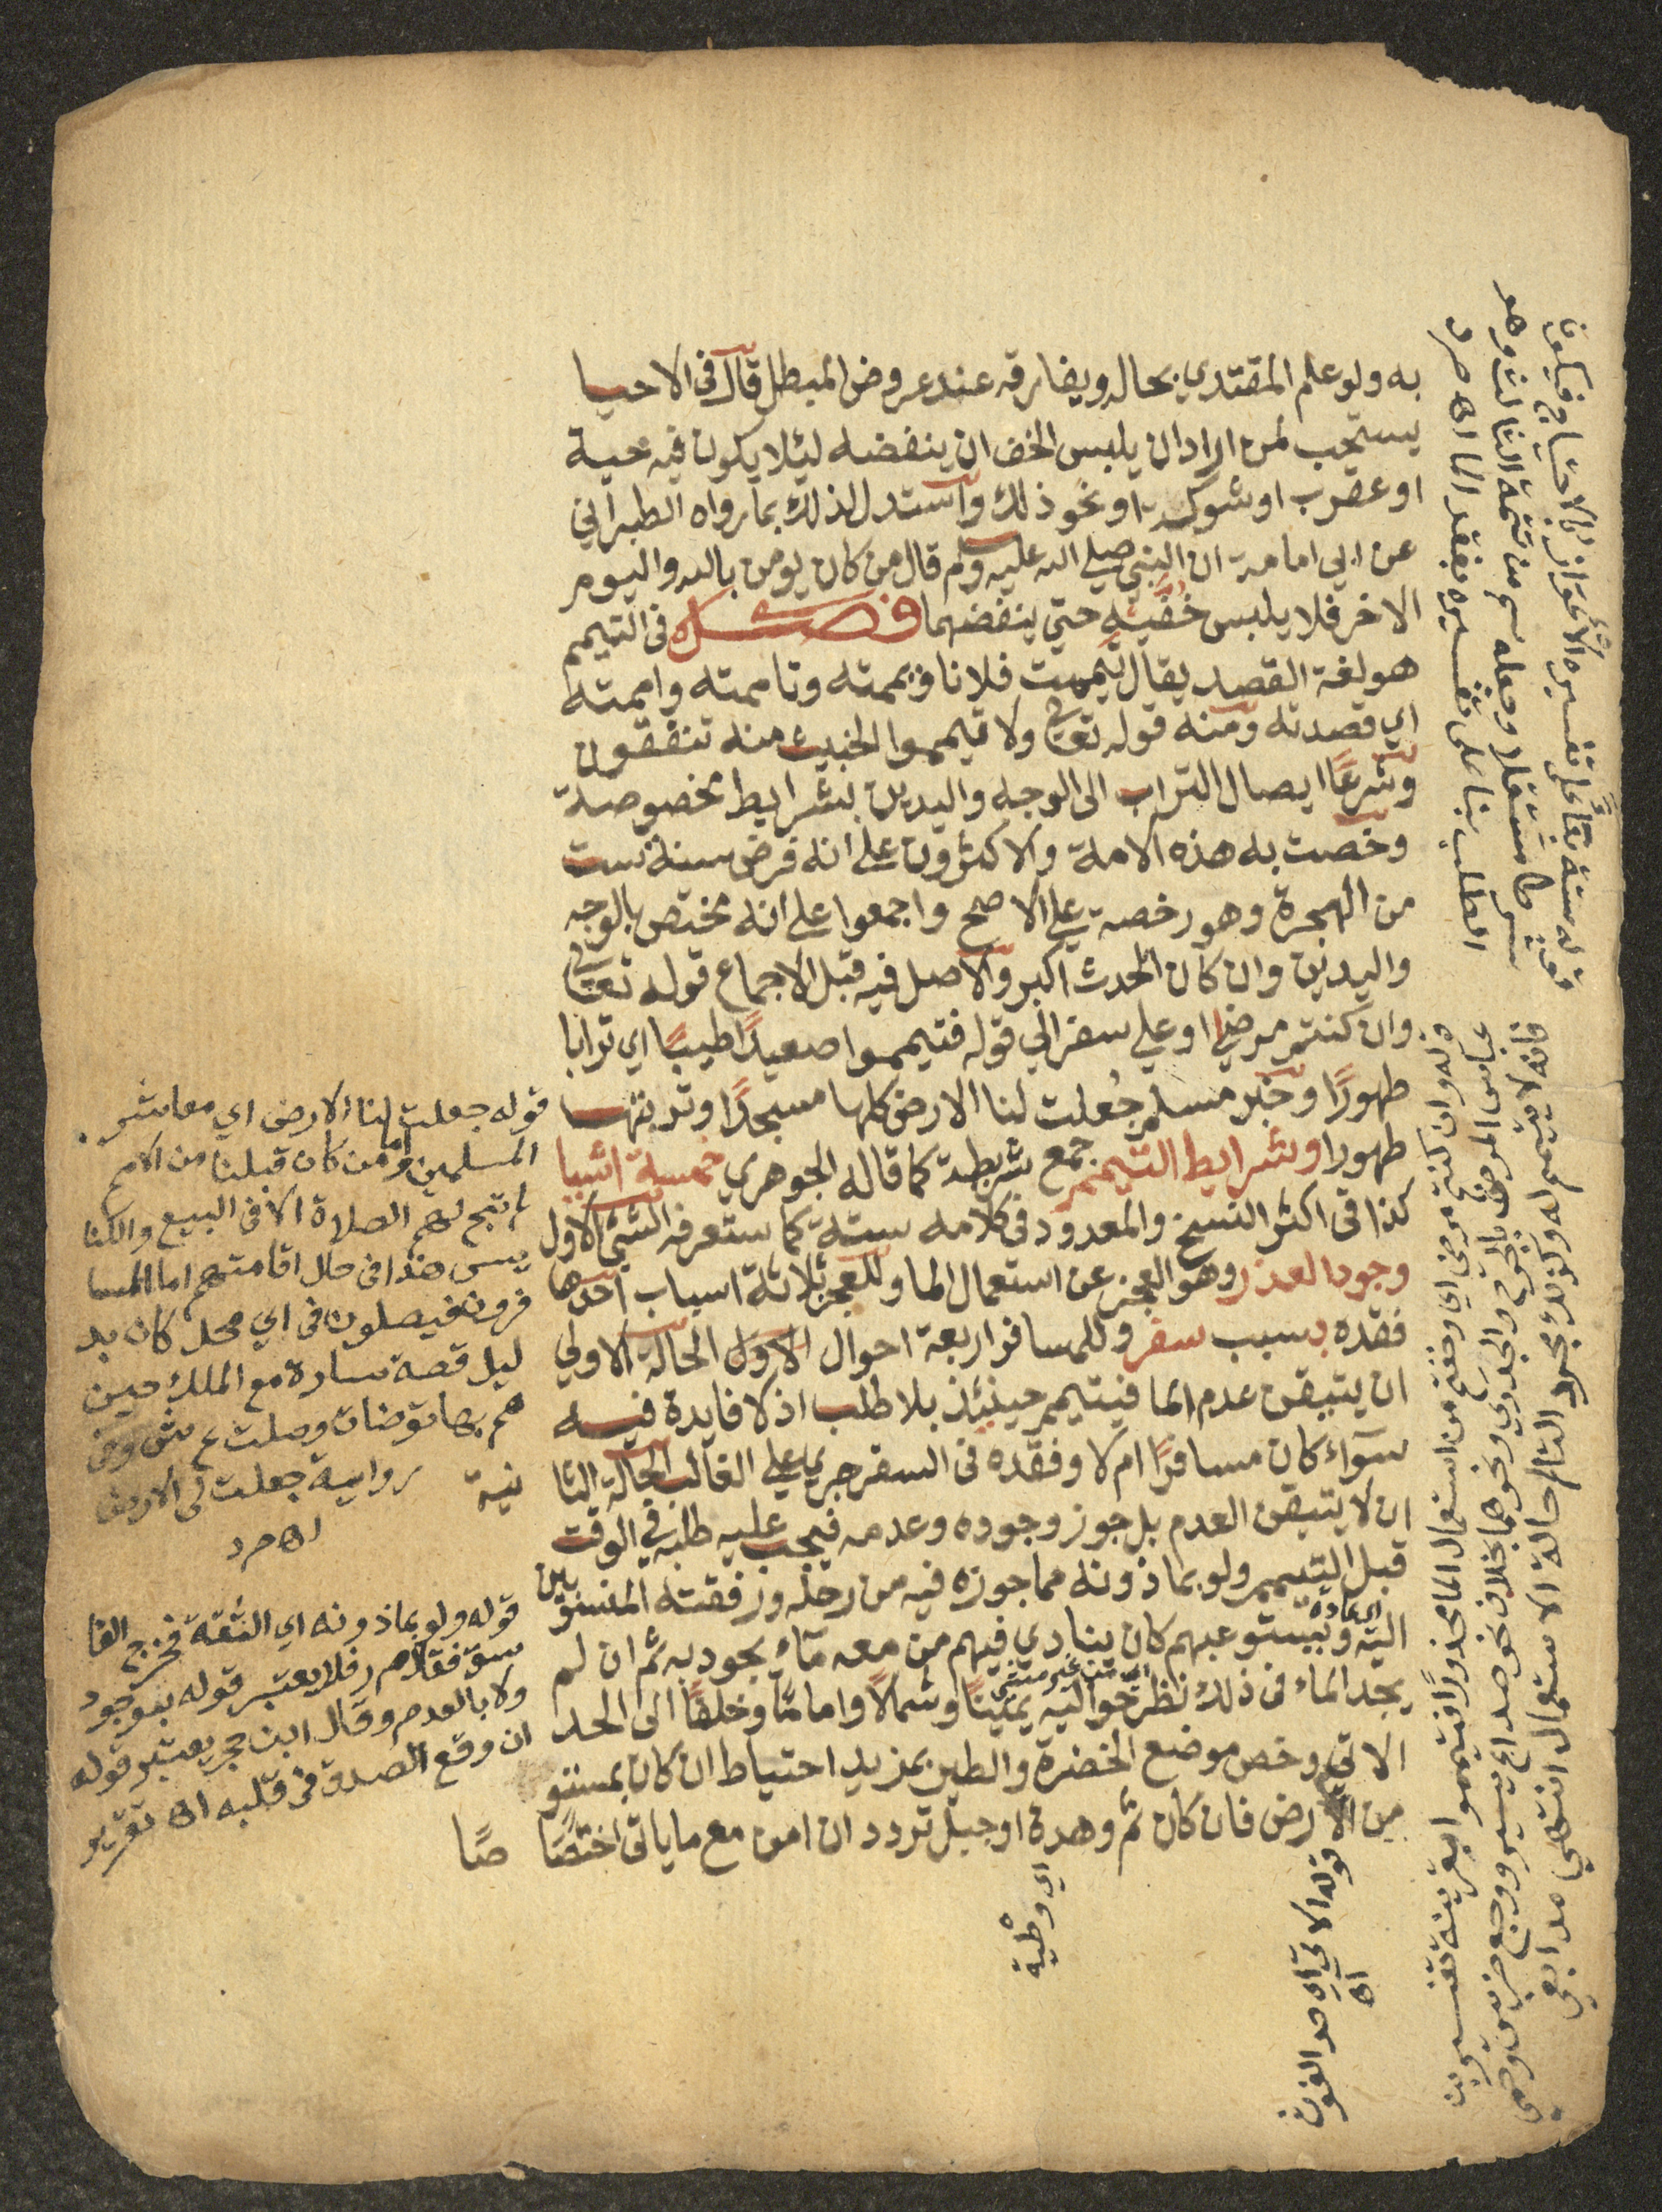 به ولو علم المقتدي بحاله ويفارقه عند عروض المبطل قال في الاحيا
يستحب لمن اراد ان يلبس الخف ان ينفضه ليلا يكون فيه حية
او عقرب او شوكة او نحو ذلك واستدل لذلك بما رواه الطبراني
عن ابي امامة ان النبي صلى الله عليه وسلم قال من كان يومن بالله واليوم
الاخر فلا يلبس خفيه حتي ينفضهما فصل في التيمم
هو لغة القصد يقال تيممت فلانا ويممته وتاممته واممته
اي قصدته ومنه قوله تعالى ولا تيمموا الخبيث منه تنفقون
وشرعًا ايصال التراب الى الوجه واليدين بشرايط مخصوصة
وخصت به هذه الامة والاكثرون على انه فرض سنة ست
من الهجرة وهو رخصة على الاصح واجمعوا على انه مختص بالوجه
واليدين وان كان الحدث اكبر والاصل فيه قبل الاجماع قوله تعالى
وان كنتم مرضي او علي سفر الي قوله فتيمموا صعيدًا طيبًا اي ترابا
طهورًا وخبر مسلم جُعلت لنا الارض كلها مسجدًا وتربتها
طهورا وشرايط التيمم جمع شريطة كما قاله الجوهري خمسة اشيا
كذا في اكثر النسخ والمعدود في كلامه ستة كما ستعرفه الشيء الاول
وجود العذر وهو العجز عن استعمال الما وللعجز ثلاثة اسباب احدها
فقده بسبب سفر وللمسافر اربعة احوال الاول الحالة الاولي
ان يتيقن عدم الما فيتيمم حينئذ بلا طلب اذ لا فايدة فيه
سوآء كان مسافرًا ام لا وفقده في السفر جري على الغالب الحالة الثا
نية
ان لا يتيقن العدم بل جوز وجوده وعدمه فيجب عليه طلبه في الوقت
قبل التيمم ولو بماذونه مما جوزه فيه من رحله ورفقته المنسوبين
اليه ويستوعبهم كان ينادي فيهم من معه مآء يجود به ثم ان لم
يجد الماء في ذلك نظر حواليه يمينًا وشمالاً واماما وخلفًا الى الحد
الاتي وخص موضع الخضرة والطير بمزيد احتياط ان كان بمستو
من الارض فان كان ثم وهدة او جبل تردد ان امن مع ما ياتي اختصا
صًا
قوله جعلت لنا الارض اي معاشر
المسلمين واما من كان قبلنا من الامم
لم تبح لهم الصلاة الا في البيع والكنا
يس هذا في حال اقامتهم اما المسا
فرون فيصلون في اي محل كان بد
ليل قصة سارة مع الملك حين
هم بها توضات وصلت وفي
رواية جعلت لى الارض
اه م د
قوله ولو بماذونه اي الثقة فخرج الفا
سق فلا يعتبر قوله بوجود
ولا بالعدم وقال ابن حجر يعتبر قوله
ان وقع الصدق في قلبه اه تقرير
قوله وان كنتم مرضي اي وخفتم من استعمال الما محذورًا فتيمموا بقرينة تفسير بن
عباس المرض بالجرح والجدري ونحوهما بخلاف نحو صداع يسير ووجع ضرس وحمي
فانه لا يتيمم له وكذلك مجرد التالم حالة الاستعمال انتهي مدابغي
قوله الاتي اي حد الغوث
اه
اي وطية